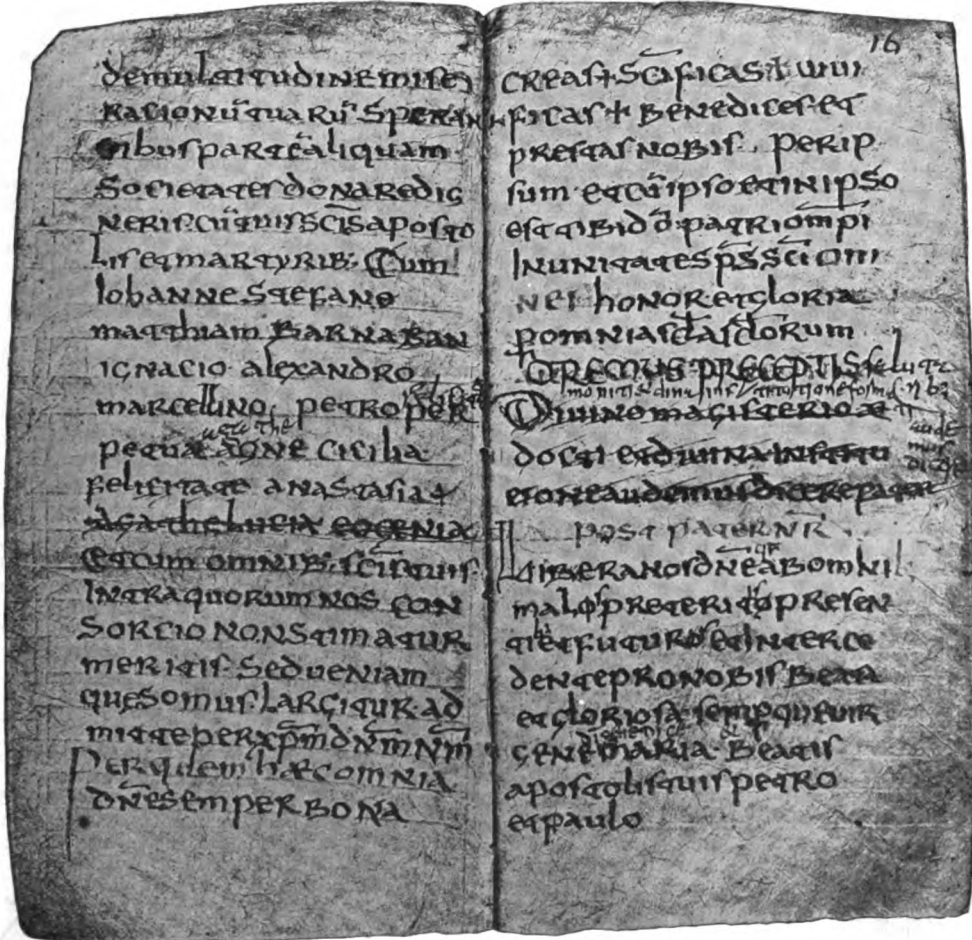 demultitudinemise
racionū tuarū speran
tibus partē aliquam
societates donaredig
neris cū tuis scīs aposto
lis et martyrib: Cum
Iohanne Stefano
matthiam Barnaban
ignacio alexandro
marcellino petro per
petuae agne cicilia
felicitate anastasia et
agathe lucia eogenia
et cum omnib: scīs tuis
Intra quorum nos con
sorcio non stimatur
meritis sed veniam
quesomus largitur ad
mitte per xp̄m dn̄m nm̄
Per quem haec omnia
dn̄e semper bona
16
creas + scīficas + uiui
ficas + benedices et
prestas nobis. per ip
sum et cū ipso et in ipso
est tibi dō patri om̄pi
In unitates sp̄s scī om
nes honor et gloria
p omnia scla sclorum
oremus preceptis salut
Divino magisterio
docti et divina institu
tione audemus dicere pater
post pater nr̄
Libera nos dn̄e ab omni
malo preterito presen
ti et futuro et interce
dente pro nobis beata
et gloriosa semperque vir
gene maria beatis
apostolis tuis petro
et paulo